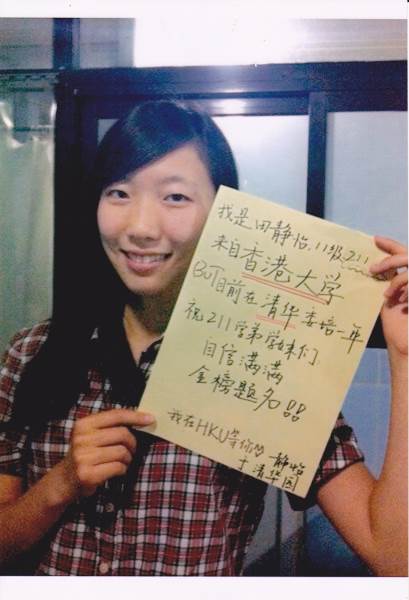 我是田静怡，11级Z11
来自香港大学
BUT目前在清华委培一年
祝Z11学弟学妹们
自信满满
金榜题名!!
我在HKU等你们
静怡
于清华园